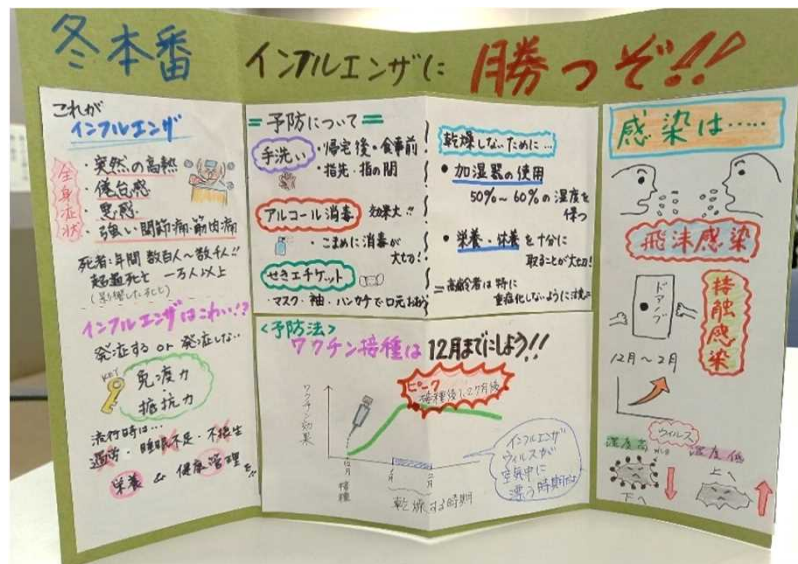 冬本番 インフルエンザに 勝つぞ!!
これが
インフルエンザ
全身症状
・突然の高熱
・倦怠感
・悪感
・強い関節痛・筋肉痛
死者:年間 数百人〜数千人!!
超過死亡 一万人以上
(影響した死亡)
インフルエンザはこわい!?
発症する or 発症しない…
KEY
免疫力
・
抵抗力
流行時は…
過労・睡眠不足・不摂生
栄養 & 健康管理を!!
=予防について=
手洗い
・帰宅後・食事前
・指先・指の間
アルコール消毒 効果大!!
・こまめに消毒が
大切!
せきエチケット
・マスク・袖・ハンカチで口元おおう
乾燥しないために…
・加湿器の使用
50%〜60%の湿度を
保つ
・栄養・休養を十分に
取ることが大切!
=高齢者は特に
重症化しないように
<予防法>
ワクチン接種は12月までにしよう!!
ピーク
接種後1〜2ヶ月後
ワクチン効果
接種
乾燥する時期
インフルエンザ
ウィルスが
空気中に
漂う時期
感染は……
飛沫感染
ドアノブ
接触感染
12月〜2月
ウィルス
湿度高
下へ
湿度低
上へ